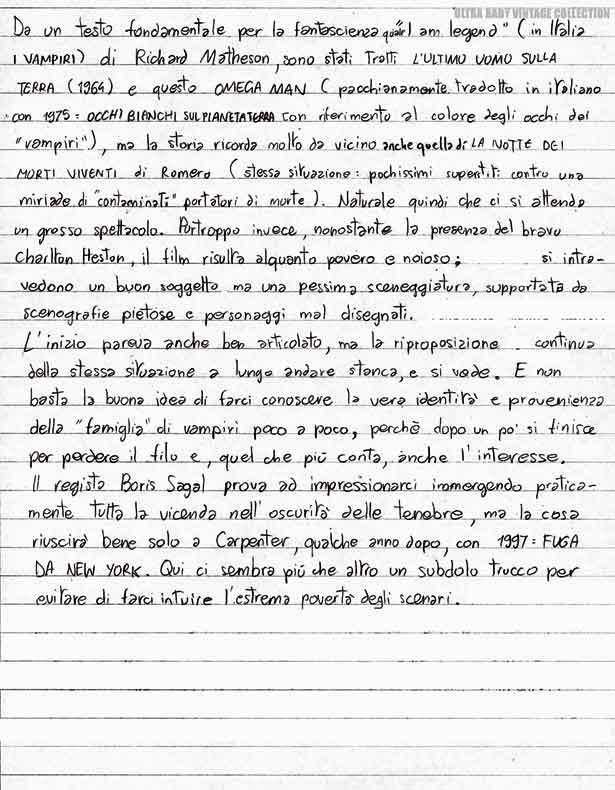 ULTRA BABY VINTAGE COLLECTION
Da un testo fondamentale per la fantascienza quale "I am legend" (in Italia
I VAMPIRI) di Richard Matheson, sono stati tratti L'ULTIMO UOMO SULLA
TERRA (1964) e questo OMEGA MAN (pacchianamente tradotto in italiano
con 1975: OCCHI BIANCHI SUL PIANETA TERRA con riferimento al colore degli occhi dei
"vampiri"), ma la storia ricorda molto da vicino anche quella di LA NOTTE DEI
MORTI VIVENTI di Romero (stessa situazione: pochissimi superstiti contro una
miriade di "contaminati" portatori di morte). Naturale quindi che ci si attenda
un grosso spettacolo. Purtroppo invece, nonostante la presenza del bravo
Charlton Heston, il film risulta alquanto povero e noioso; si intra-
vedono un buon soggetto ma una pessima sceneggiatura, supportata da
scenografie pietose e personaggi mal disegnati.
L'inizio pareva anche ben articolato, ma la riproposizione continua
della stessa situazione a lungo andare stanca, e si vede. E non
basta la buona idea di farci conoscere la vera identità e provenienza
della "famiglia" di vampiri poco a poco, perchè dopo un po' si finisce
per perdere il filo e, quel che più conta, anche l'interesse.
Il regista Boris Sagal prova ad impressionarci immergendo pratica-
mente tutta la vicenda nell'oscurità delle tenebre, ma la cosa
riuscirà bene solo a Carpenter, qualche anno dopo, con 1997: FUGA
DA NEW YORK. Qui ci sembra più che altro un subdolo trucco per
evitare di farci intuire l'estrema povertà degli scenari.